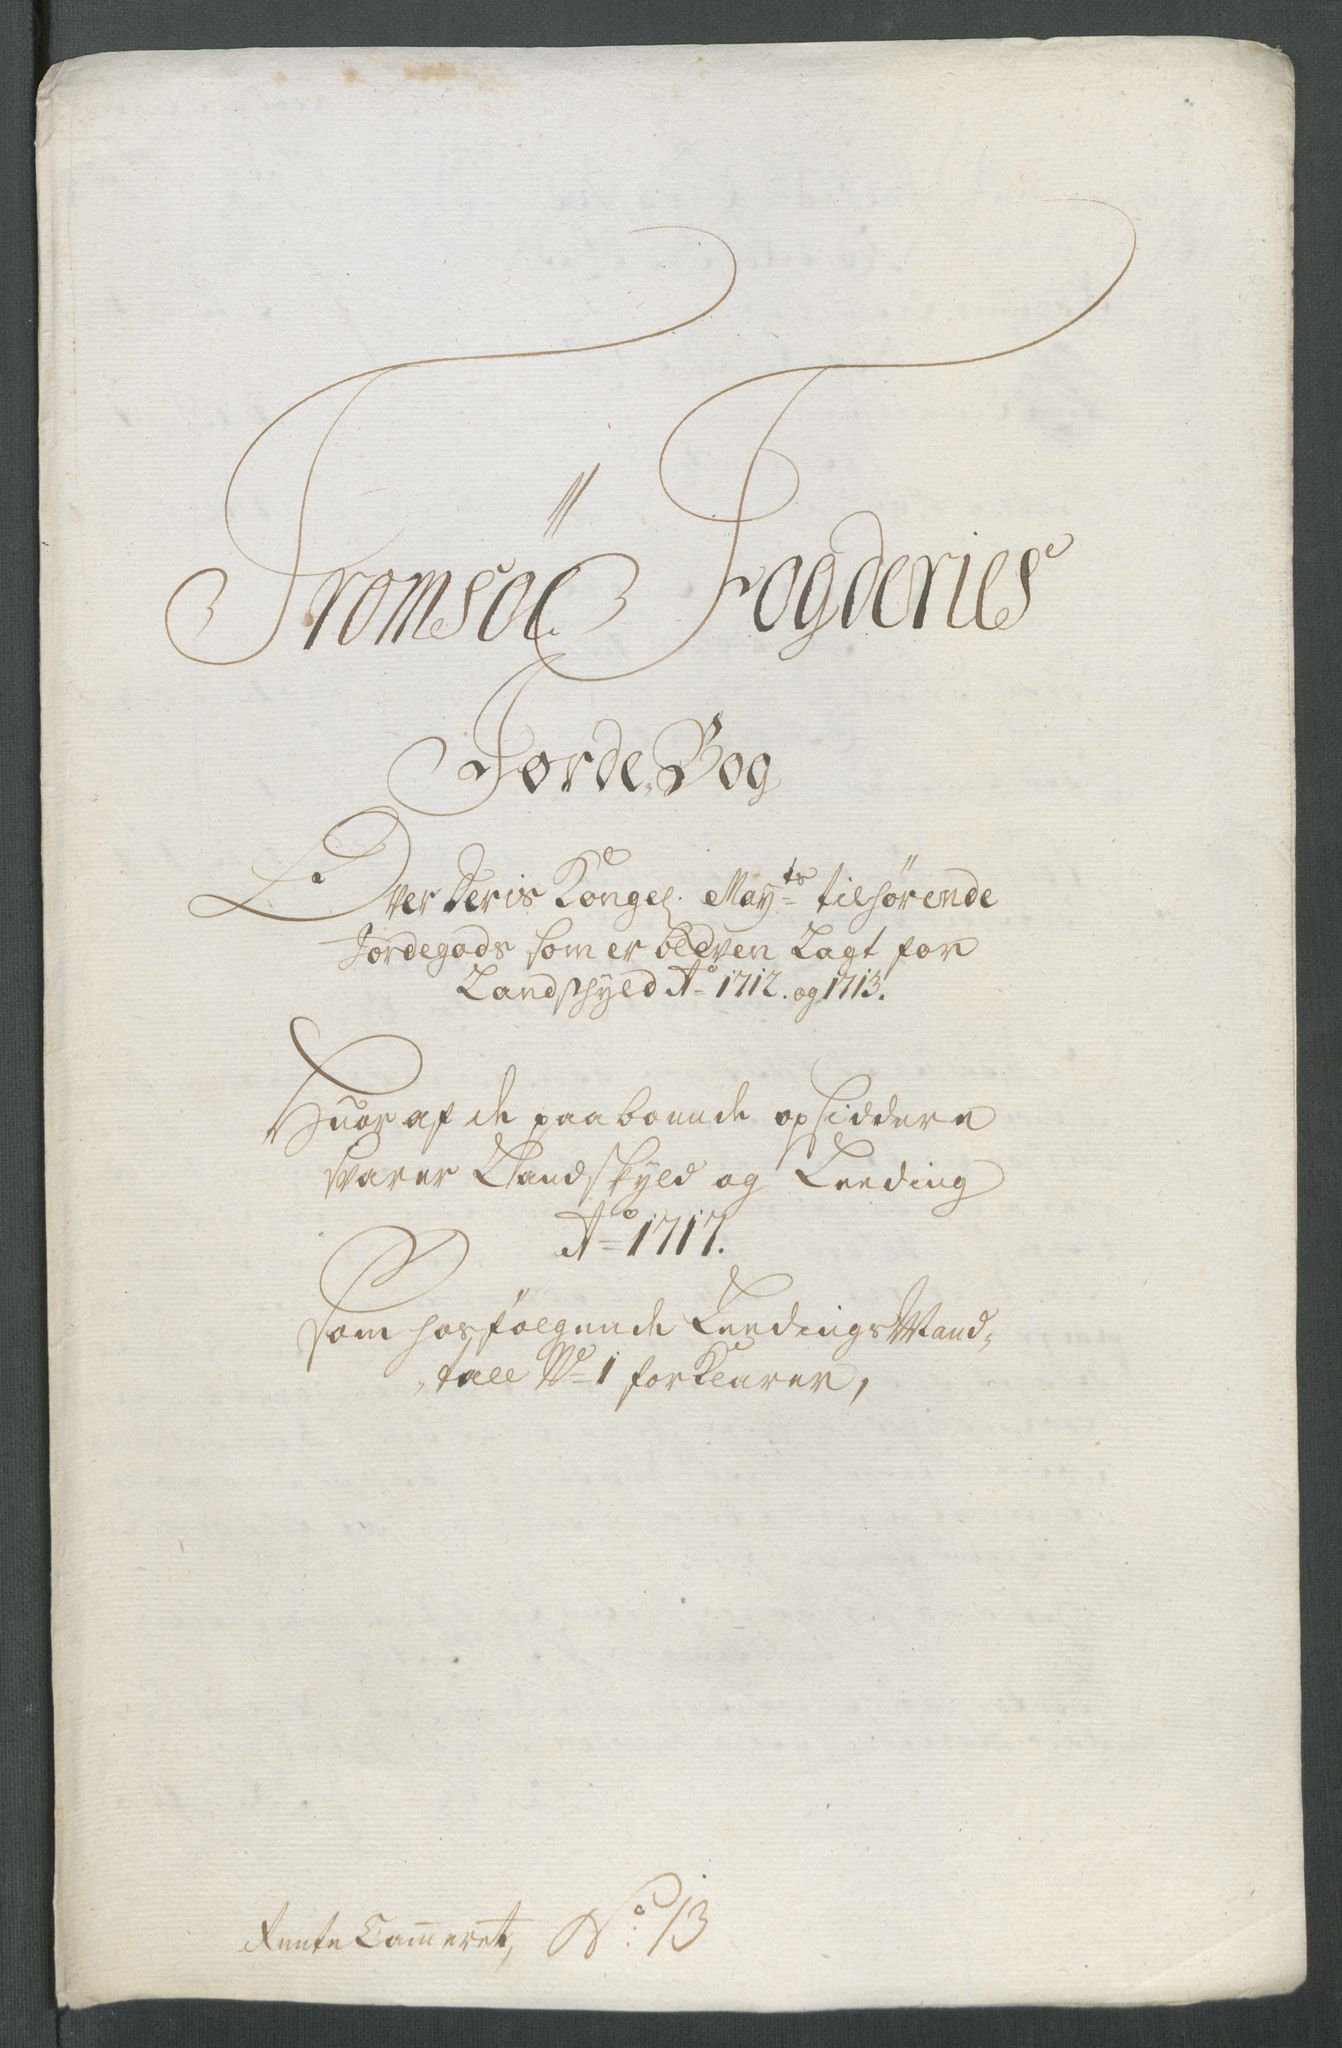 Tromsöe Fogderies
Jorde Bog
Over Deris Kongel. Mayts tilhörende
Jordegods som er bleven Lagt for
Landskyld Ao 1712. og 1713.
Huor af de paaboende opsiddere
svarer Landskyld og Leeding
Ao 1717.
som hosfölgende Leedings Mand-
tall No 1 forklarer,
Rente Cammeret, No. 13